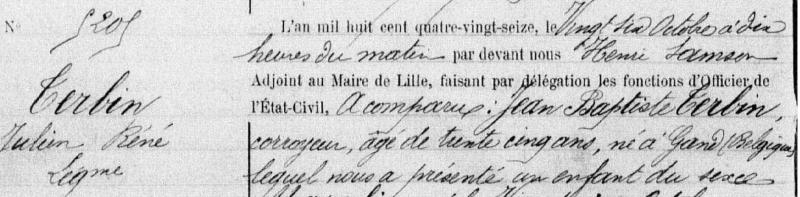 N° 5205
Terbin
Julien Réné
Legme
L'an mil huit cent quatre-vingt-seize, le Vingt six Octobre à dix
heures du matin par devant nous Henri Samson
Adjoint au Maire de Lille, faisant par délégation les fonctions d'Officier de
l'État-Civil, A comparu : Jean Baptiste Terbin,
corroyeur, âgé de trente cinq ans, né à Gand (Belgique)
lequel nous a présenté un enfant du sexe